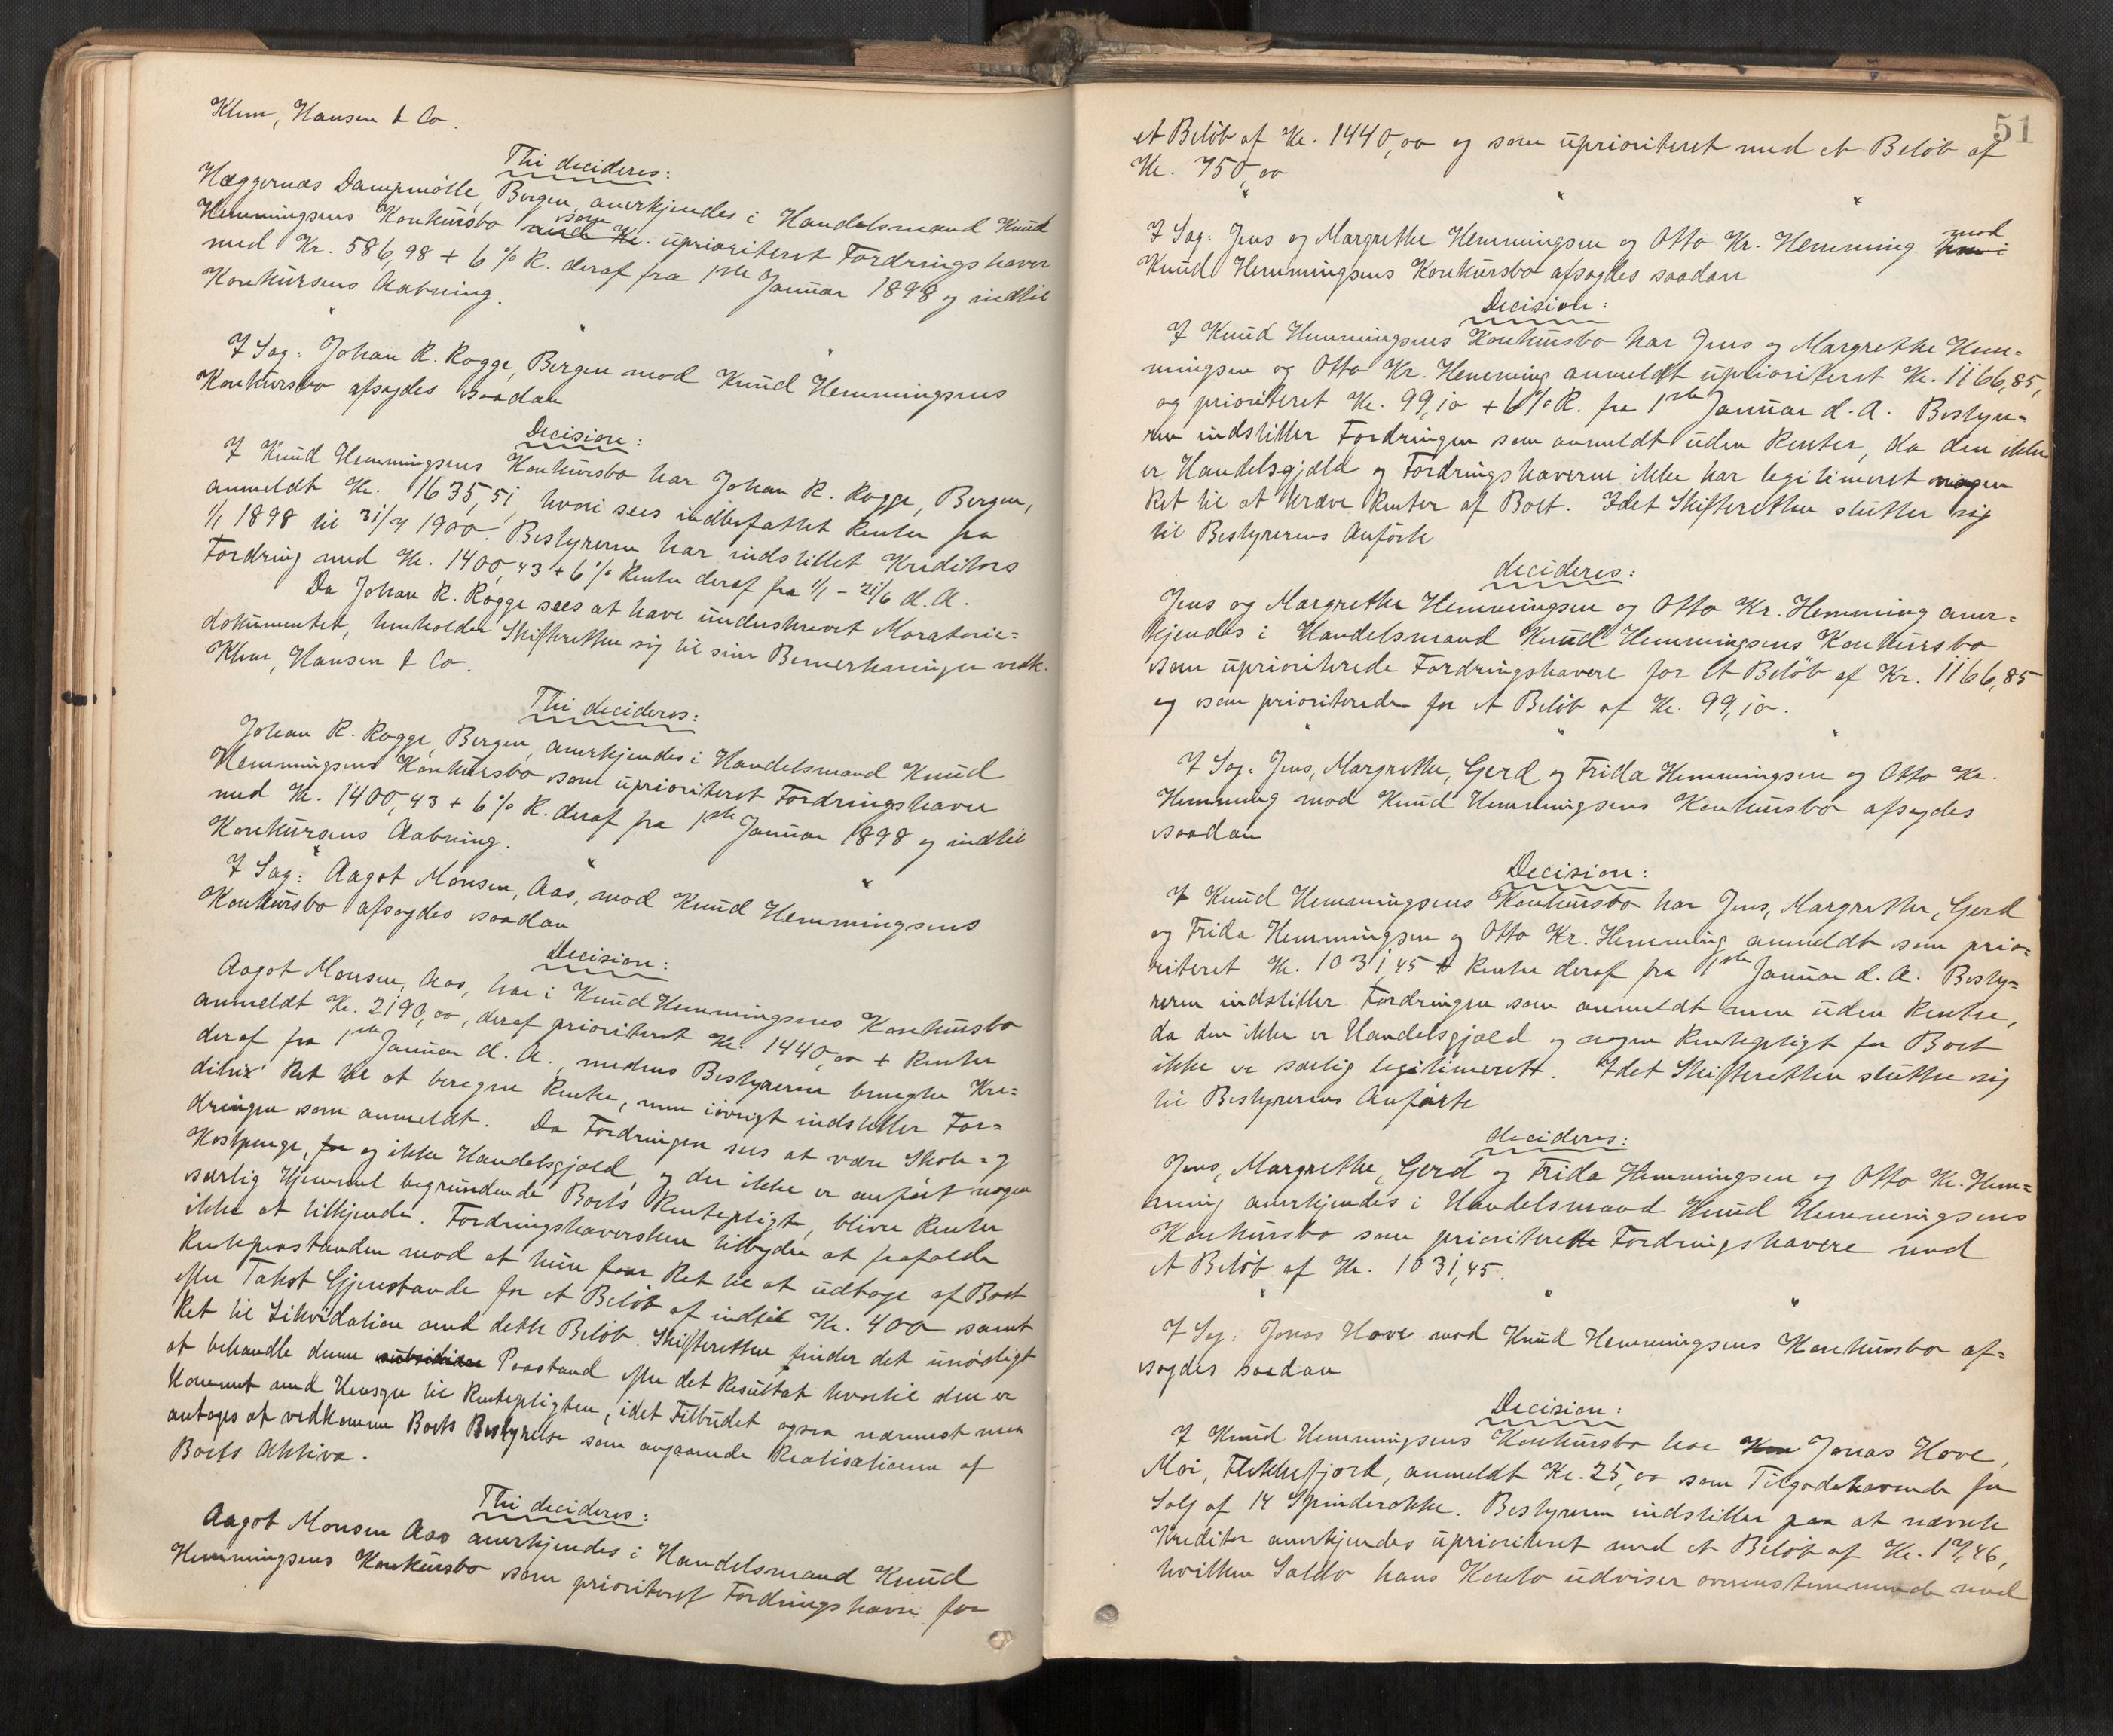 Klem, Hansen & Co.
Thi decideres:
Hæggernæs Dampmølle, Bergen, anerkjendes i Handelsmand Knud
Hemmingsens Konkursbo som uprioriteret Fordringshaver
med Kr. 586,98 + 6 % R. deraf fra 1ste Januar 1898 og indtil
Konkursens Aabning.
I Sag: Johan R. Rogge, Bergen mod Knud Hemmingsens
Konkursbo afsagdes saadan
Decision:
I Knud Hemmingsens Konkursbo har Johan R. Rogge, Bergen,
anmeldt Kr. 1635,51, hvori sees indbefattet Renter fra
1/1 1898 til 31/7 1900. Bestyreren har indstillet Kreditors
Fordring med Kr. 1400,43 + 6 % Rente deraf fra 1/1 - 21/6 d. A.
Da Johan R. Rogge sees at have underskrevet Moratorie=
dokumentet, henholder Skifteretten sig til sine Bemerkninger vedk.
Klem, Hansen & Co.
Thi decideres:
Johan R. Rogge, Bergen, anerkjendes i Handelsmand Knud
Hemmingsens Konkursbo som uprioriteret Fordringshaver
med Kr. 1400,43 + 6 % R. deraf fra 1ste Januar 1898 og indtil
Konkursens Aabning.
I Sag: Aagot Monsen, Aas, mod Knud Hemmingsens
Konkursbo afsagdes saadan
Decision:
Aagot Monsen, Aas, har i Knud Hemmingsens Konkursbo
anmeldt Kr. 2190,00, deraf prioriteret Kr. 1440,00 + Renter
deraf fra 1ste Januar d. A., medens Bestyreren benegter Kre=
ditrix' Ret til at beregne Rente, men iøvrigt indstiller For=
dringen som anmeldt. Da Fordringen sees at være Skole= og
Kostpenge, og ikke Handelsgjæld, og der ikke er anført nogen
særlig Hjemmel begrundende Boets Rentepligt, bliver Renter
ikke at tilkjende. Fordringshaversken tilbyder at frafalde
Rentepaastanden mod at hun faar Ret til at udtage af Boet
efter Takst Gjenstande for et Beløb af indtil Kr. 400 samt
Ret til Likvidation med dette Beløb. Skifteretten finder det unødigt
at behandle denne subsidiære Paastand efter det Resultat hvortil den er
kommet med Hensyn til Rentepligten, idet Tilbudet ogsaa nærmest maa
antages at vedkomme Boets Bestyrelse som angaaende Realisationen af
Boets Aktiva.
Thi decideres:
Aagot Monsen Aas anerkjendes i Handelsmand Knud
Hemmingsens Konkursbo som prioriteret Fordringshaver for
51
et Beløb af Kr. 1440,00 og som uprioriteret med et Beløb af
Kr. 750,00
I Sag: Jens og Margrethe Hemmingsen og Otto Kr. Hemming mod
Knud Hemmingsens Konkursbo afsagdes saadan
Decision:
I Knud Hemmingsens Konkursbo har Jens og Margrethe Hem=
mingsen og Otto Kr. Hemming anmeldt uprioriteret Kr. 1166,85,
og prioriteret Kr. 99,10 + 6 % R. fra 1ste Januar d. A. Bestyre=
ren indstiller Fordringen som anmeldt uden Renter, da den ikke
er Handelsgjæld og Fordringshaverne ikke har legitimeret nogen
Ret til at kræve Renter af Boet. Idet Skifteretten slutter sig
til Bestyrerens Anførte
decideres:
Jens og Margrethe Hemmingsen og Otto Kr. Hemming aner=
kjendes i Handelsmand Knud Hemmingsens Konkursbo
som uprioriterede Fordringshavere for et Beløb af Kr. 1166,85
og som prioriterede for et Beløb af Kr. 99,10.
I Sag: Jens, Margrethe, Gerd og Frida Hemmingsen og Otto Kr.
Hemming mod Knud Hemmingsens Konkursbo afsagdes
saadan
Decision:
I Knud Hemmingsens Konkursbo har Jens, Margrethe, Gerd
og Frida Hemmingsen og Otto Kr. Hemming anmeldt som prio=
riteret Kr. 1031,45 + Rente deraf fra 1ste Januar d. A. Besty=
reren indstiller Fordringen som anmeldt men uden Rente,
da den ikke er Handelsgjæld og nogen Rentepligt for Boet
ikke er særlig legitimeret. Idet Skifteretten slutter sig
til Bestyrerens Anførte
decideres:
Jens, Margrethe, Gerd og Frida Hemmingsen og Otto Kr. Hem=
ming anerkjendes i Handelsmand Knud Hemmingsens
Konkursbo som prioriterede Fordringshavere med
et Beløb af Kr. 1031,45.
I Sag: Jonas Hove mod Knud Hemmingsens Konkursbo af=
sagdes saadan
Decision:
I Knud Hemmingsens Konkursbo har Jonas Hove,
Moi, Flekkefjord, anmeldt Kr. 25,00 som Tilgodehavende for
Salg af 14 Spinderokke. Bestyreren indstiller paa at nævnte
Kreditor anerkjendes uprioriteret med et Beløb af Kr. 17,46,
hvilken Saldo hans Konto udviser overensstemmende med